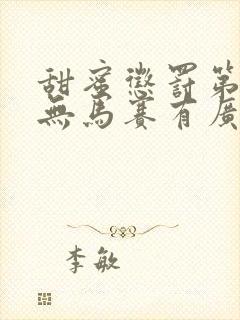 甜蜜懲罰第
無馬賽有廣
李敏